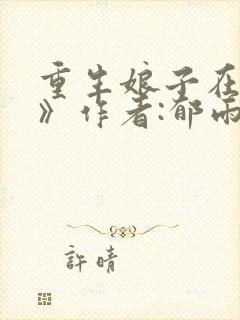 重生娘子在
》作者:郁雨
許晴